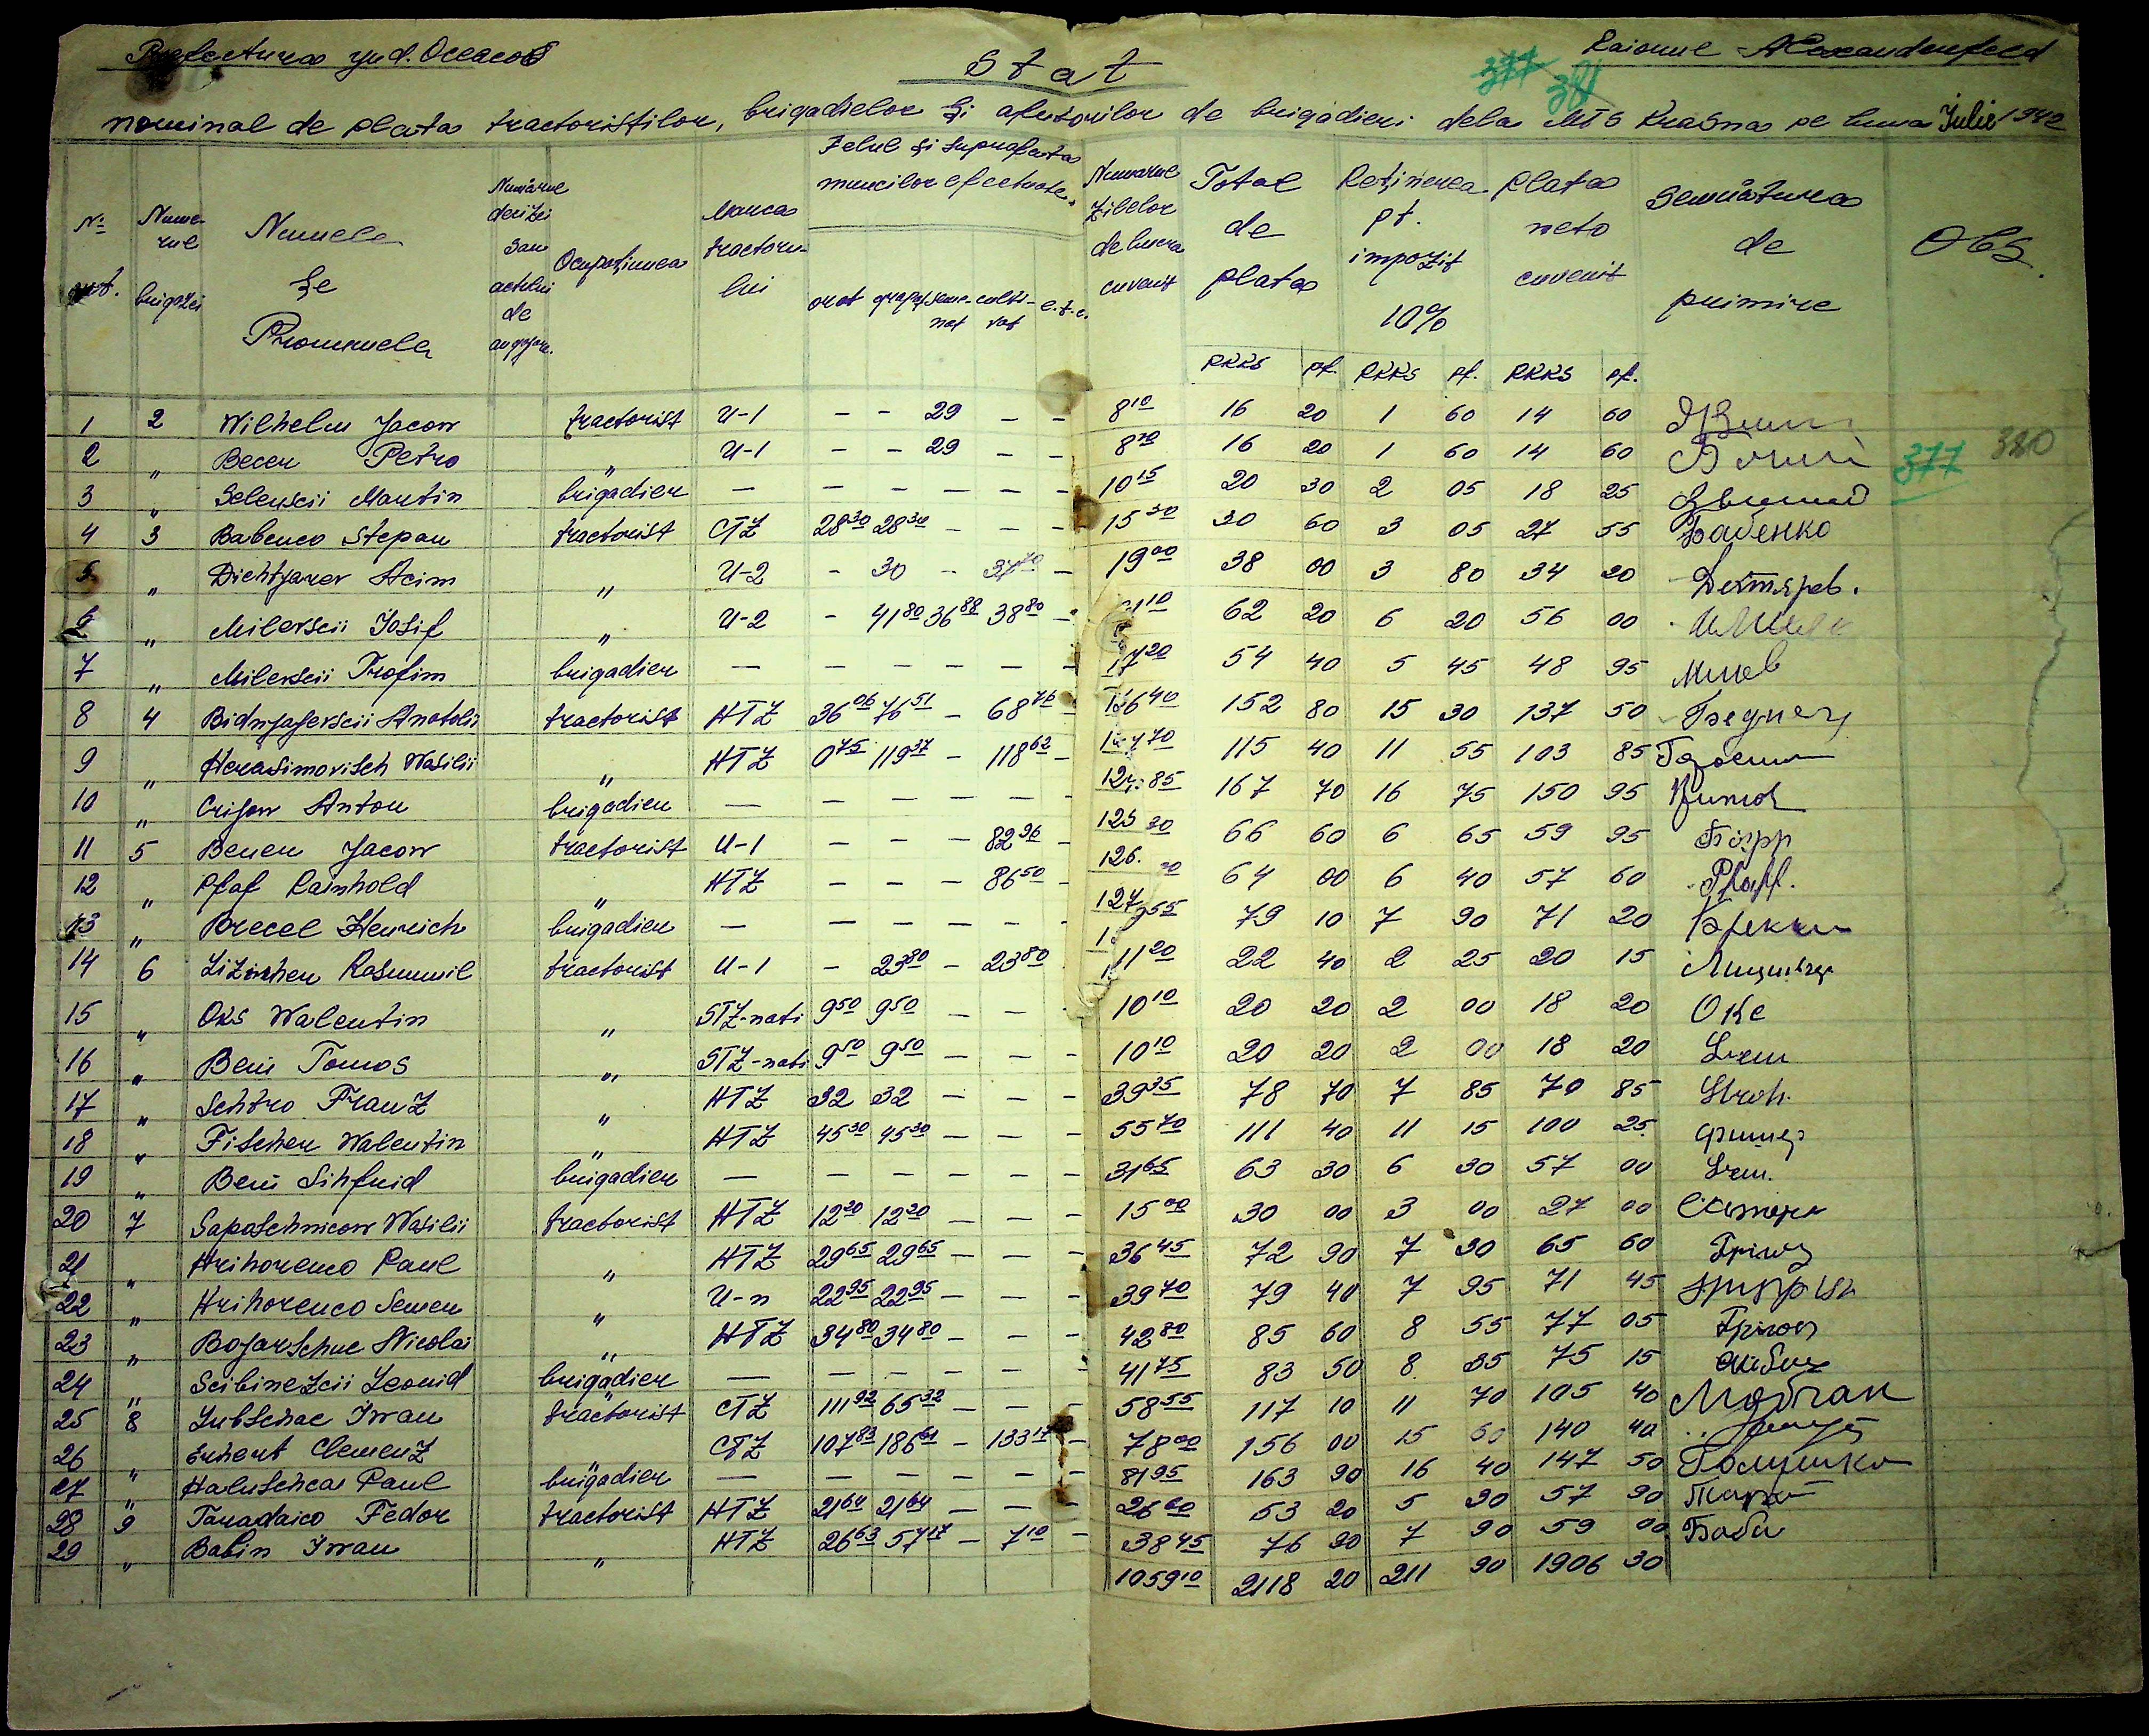 Prefectura jud. Oceacov
Raionul Alexandenfeld
Stat
377 381
nominal de plata tractoriștilor, brigadielor și afutorilor de brigadieri dela MTS Krasna pe luna Julie 1942
№ ort. Numerul brigăzei Numele Șe Pronumele Numărul derizei sau actului de angajare. Ocupațiunea Marca tractorului Felul și suprafata muncilor efectuate. Numarul zilelor de lucru cuvenit Total de plata Reținerea pt. impozit 10% Plata neto cuvenit Semnătura de primire Obs.
arat grapat semenat cultivat e.t.c.
RKKS pf. RKKS pf. RKKS pf.
1 2 Wilhelm Jacow tractorist U-1 - - 29 - - 8 10 16 20 1 60 14 60
2 " Becer Petro " U-1 - - 29 - - 8 10 16 20 1 60 14 60
377 380
3 " Selenscii Martin brigadier - - - - - - 10 15 20 30 2 05 18 25
4 3 Babenco Stepan tractorist CTZ 28 30 28 30 - - - 15 30 30 60 3 05 27 55 Бабенко
5 " Dichtjarer Acim " U-2 - 30 - - 19 00 38 00 3 80 34 20 Дектярев.
6 " Milevscii Josif " U-2 - 41 80 36 88 38 80 - 62 20 6 20 56 00
7 " Milevscii Trofim brigadier - - - - - - 17 20 54 40 5 45 48 95 Милев
8 4 Bidnjajevscii Anatolii tractorist HTZ 36 06 76 51 - 68 76 - 152 80 15 30 137 50
9 " Herasimovisch Wasilii " HTZ 0 75 119 37 - 118 62 - 115 40 11 55 103 85
10 " Crijow Anton brigadier - - - - - - 124. 85 167 70 16 75 150 95
11 5 Berer Jacow tractorist U-1 - - - 82 26 - 125 66 60 6 65 59 95
12 " Pfaf Rainhold " HTZ - - - 86 50 - 126. 64 00 6 40 57 60 Pfaff.
13 " Brecel Henrich brigadier - - - - - - 127 79 10 7 90 71 20
14 6 Lizinher Rasumil tractorist U-1 - 23 80 - 23 80 - 11 20 22 40 2 25 20 15
15 " Oks Walentin " STZ-nati 9 50 9 50 - - - 10 10 20 20 2 00 18 20 Окс
16 " Bem Tomos " STZ-nati 9 50 9 50 - - - 10 10 20 20 2 00 18 20
17 " Schtro Franz " HTZ 32 32 - - - 39 35 78 70 7 85 70 85 Stroh.
18 " Fischer Walentin " HTZ 45 30 45 30 - - - 55 70 111 40 11 15 100 25
19 " Bem Sihfrid brigadier - - - - - - 31 65 63 30 6 30 57 00
20 7 Sapaschnicow Wasilii tractorist HTZ 12 20 12 20 - - - 15 00 30 00 3 00 27 00
21 " Hrihorenco Paul " HTZ 29 65 29 65 - - - 36 45 72 90 7 30 65 60
22 " Hrihorenco Semen " U-n 22 95 22 95 - - - 39 70 79 40 7 95 71 45
23 " Bojarschuc Nicolai " HTZ 34 80 34 80 - - - 42 80 85 60 8 55 77 05
24 " Scibinezcii Leonid brigadier - - - - - - 41 75 83 50 8 35 75 15
25 8 Lubschac Iwan tractorist CTZ 111 92 65 32 - - - 58 55 117 10 11 70 105 40
26 " Erhert Clemenz " CTZ 107 83 186 61 - 133 17 - 78 00 156 00 15 60 140 40
27 " Haluschca Paul brigadier - - - - - - 81 95 163 90 16 40 147 50 Галушка
28 9 Taradaico Fedor tractorist HTZ 21 64 21 64 - - - 26 60 53 20 5 30 57 90
29 " Babin Iwan " HTZ 26 63 57 17 - 7 10 - 38 45 76 90 7 90 59 00
1059 10 2118 20 211 90 1906 30